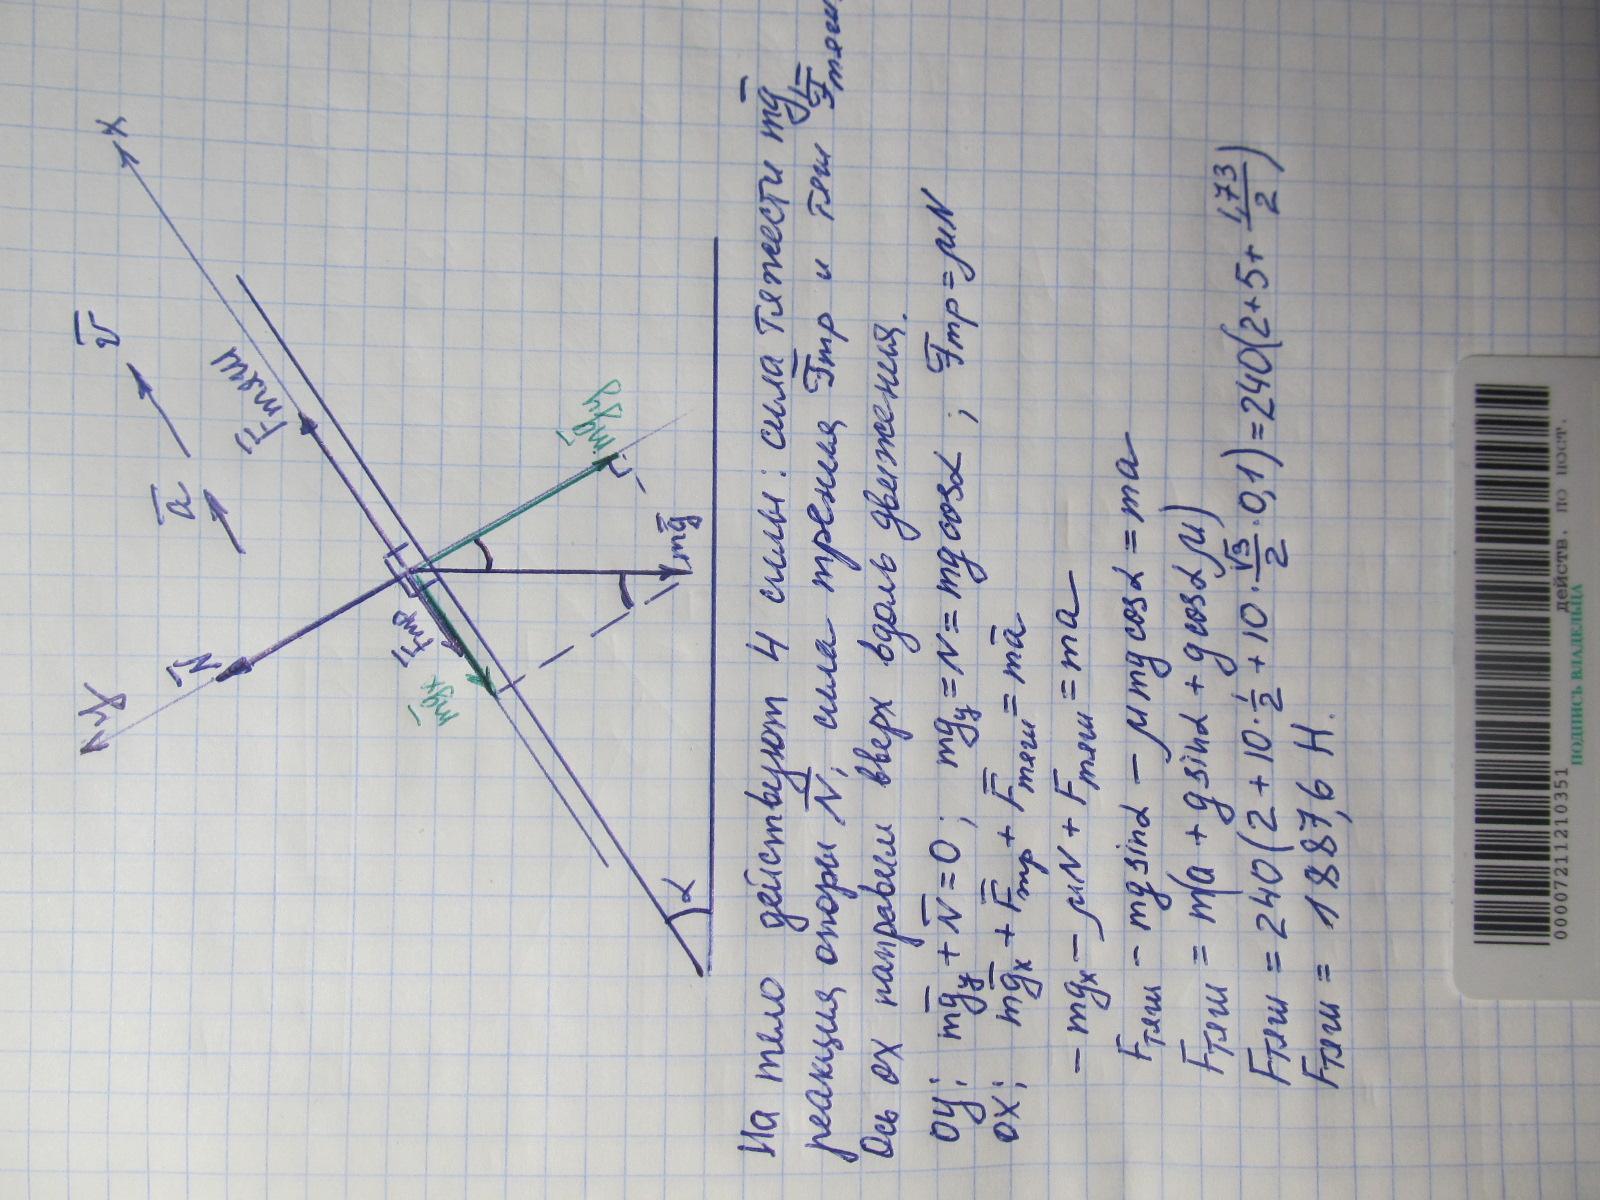 y
x
N̄
F̄тяги
ā
v̄
F̄тр
mḡx
mḡy
mḡ
α
На тело действуют 4 силы: сила тяжести mḡ,
реакция опоры N̄, сила трения F̄тр и тяги F̄тяги
Ось ох направим вверх вдоль движения.
оу: mḡy + N̄ = 0; mgy = N = mg cosα ; Fтр = μN
ох: mḡx + F̄тр + F̄тяги = mā
- mgx - μN + Fтяги = ma
Fтяги - mg sinα - μ mg cosα = ma
Fтяги = m(a + g sinα + g cosα μ)
Fтяги = 240(2 + 10 · 1/2 + 10 · √3/2 · 0,1) = 240(2 + 5 + 1,73/2)
Fтяги = 1887,6 Н.
0000721121​0351
действ. по пост.
ПОДПИСЬ ВЛАДЕЛЬЦА